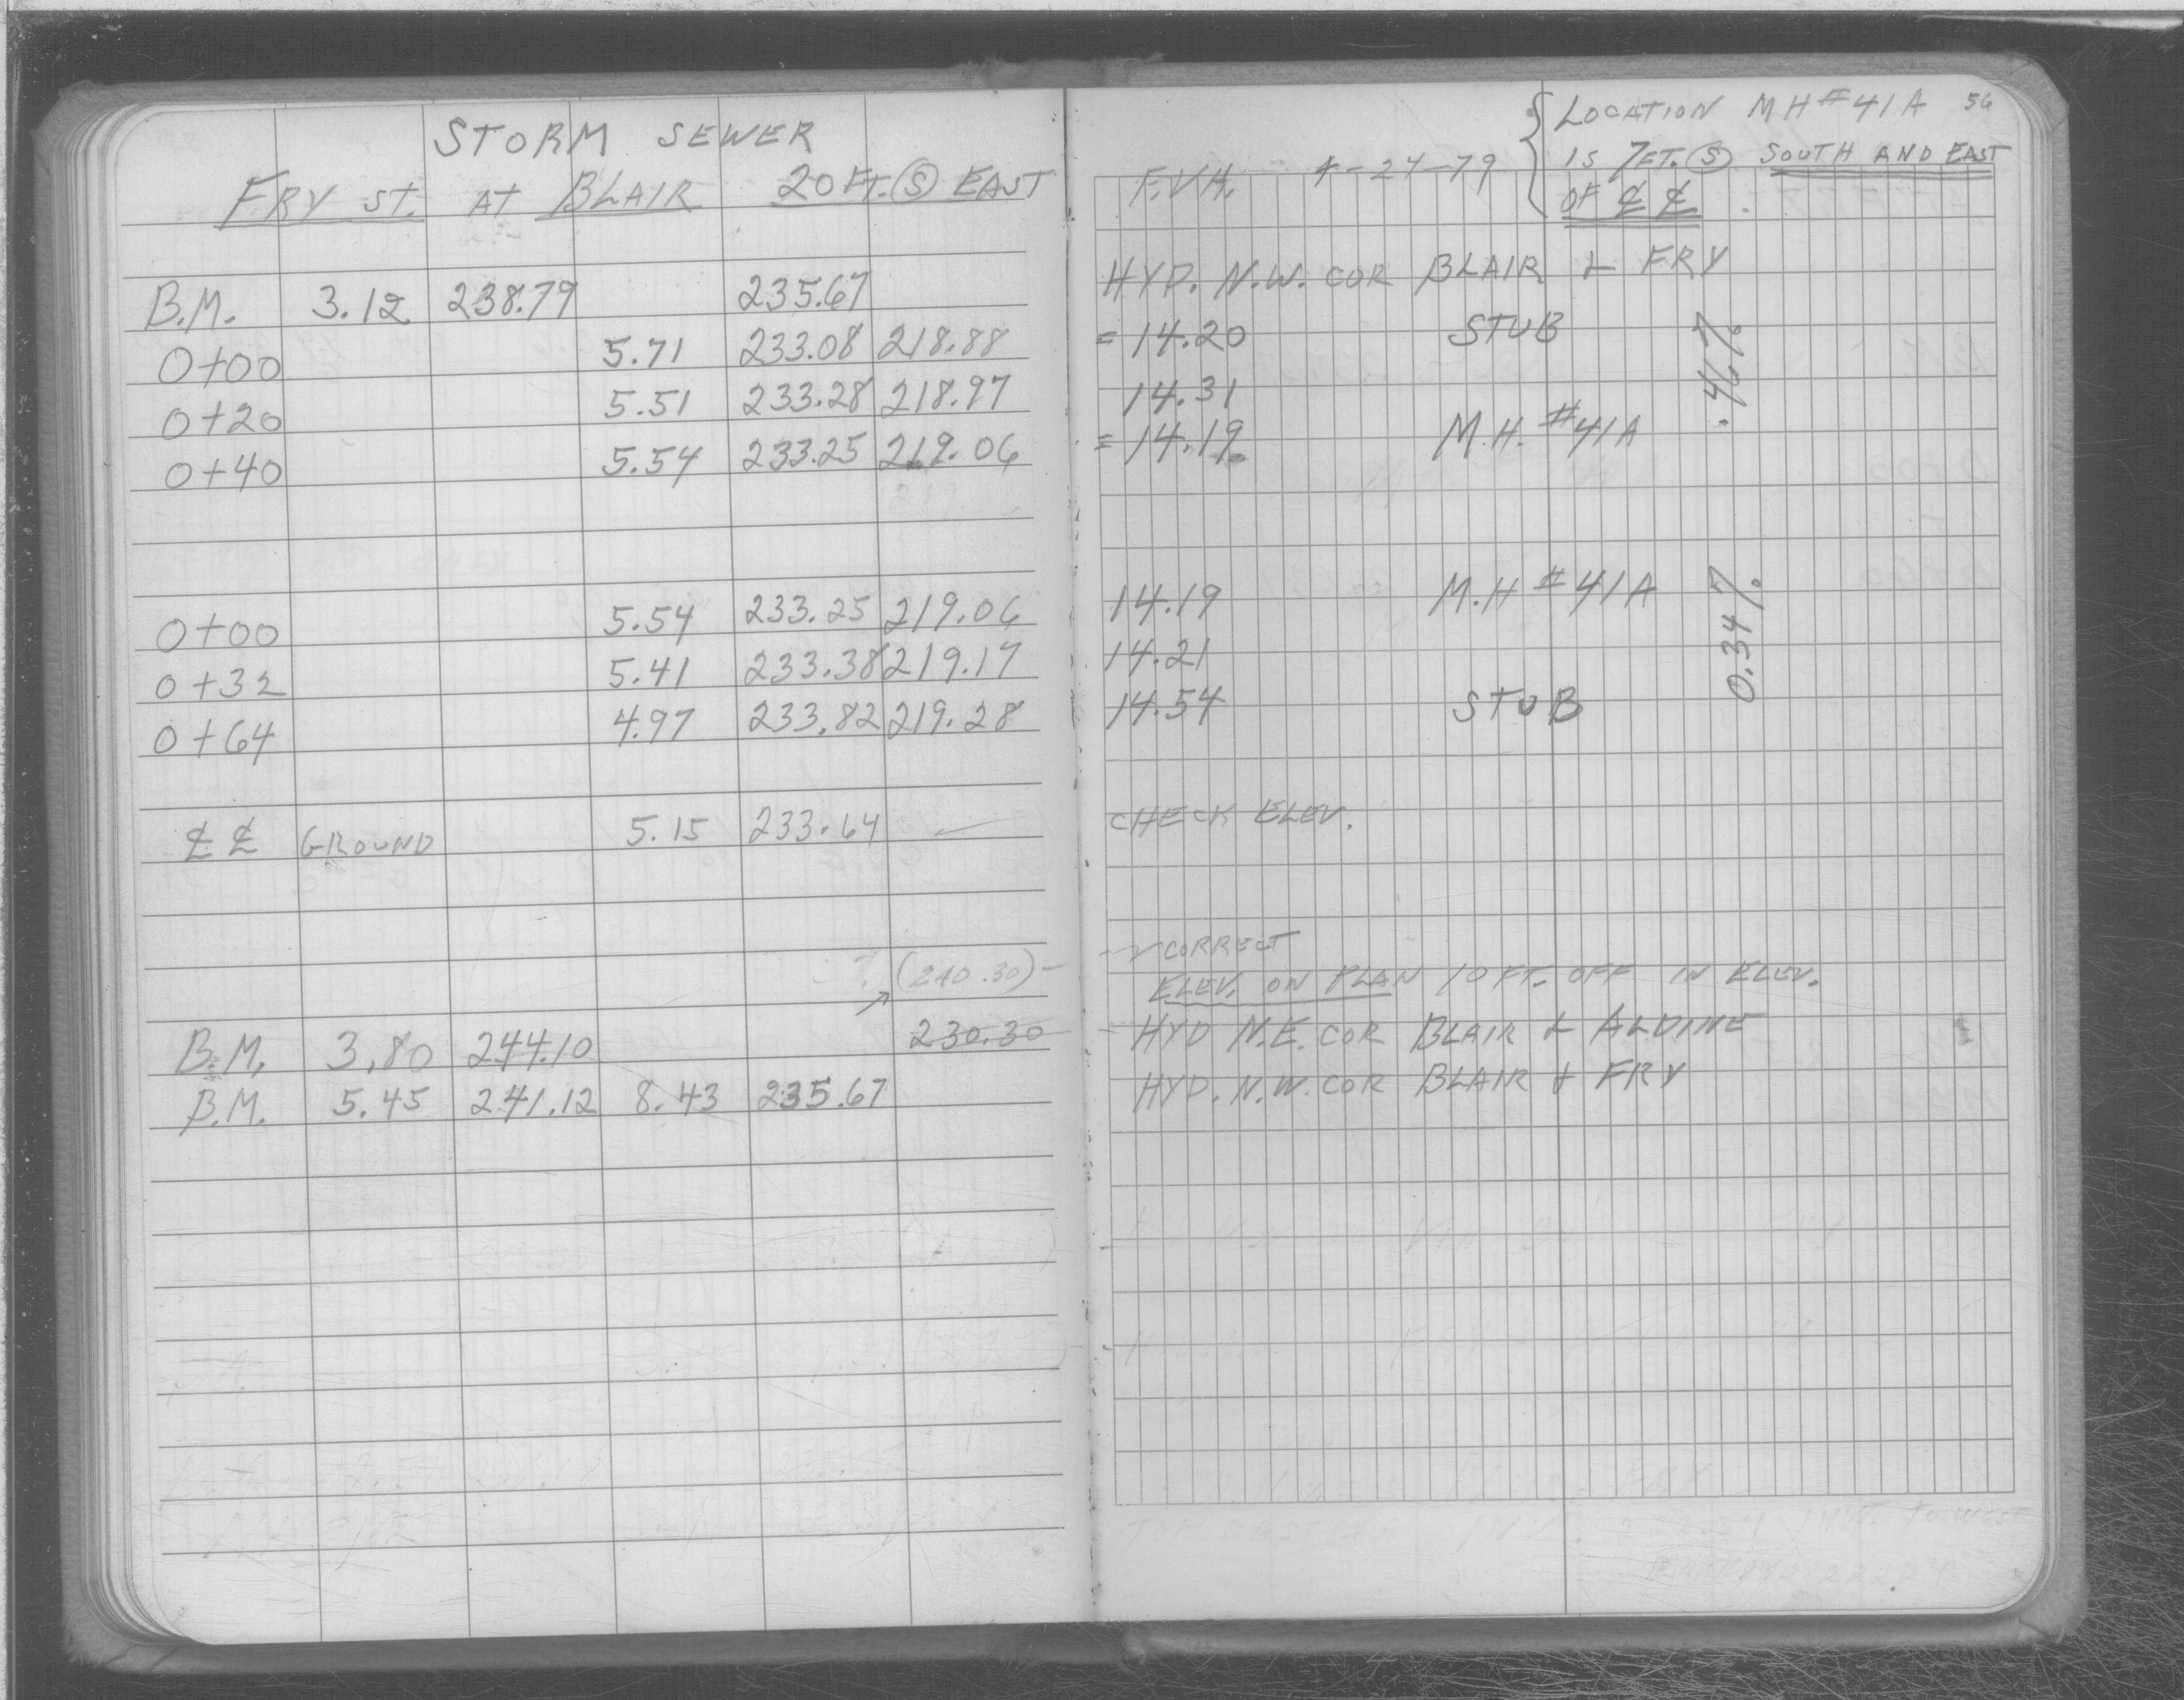 STORM SEWER
FRY ST. AT BLAIR 20 FT. Ⓢ EAST
B.M. 3.12 238.79 235.67
0+00 5.71 233.08 218.88
0+20 5.51 233.28 218.97
0+40 5.54 233.25 219.06
0+00 5.54 233.25 219.06
0+32 5.41 233.38 219.17
0+64 4.97 233.82 219.28
℄ ℄ GROUND 5.15 233.64
? (240.30)
B.M. 3.80 244.10 230.30
B.M. 5.45 241.12 8.43 235.67
LOCATION MH #41A 56
IS 7 FT. Ⓢ SOUTH AND EAST
OF ℄ ℄
F.V.H. 4-24-79
HYD. N.W. COR BLAIR & FRY
= 14.20 STUB
14.31
= 14.19 M.H. #41A
.46%
14.19 M.H #41A
14.21
14.54 STUB
0.34%
CHECK ELEV.
CORRECT
ELEV. ON PLAN 10 FT. OFF IN ELEV.
HYD N.E. COR BLAIR & ALDINE
HYD. N.W. COR BLAIR & FRY